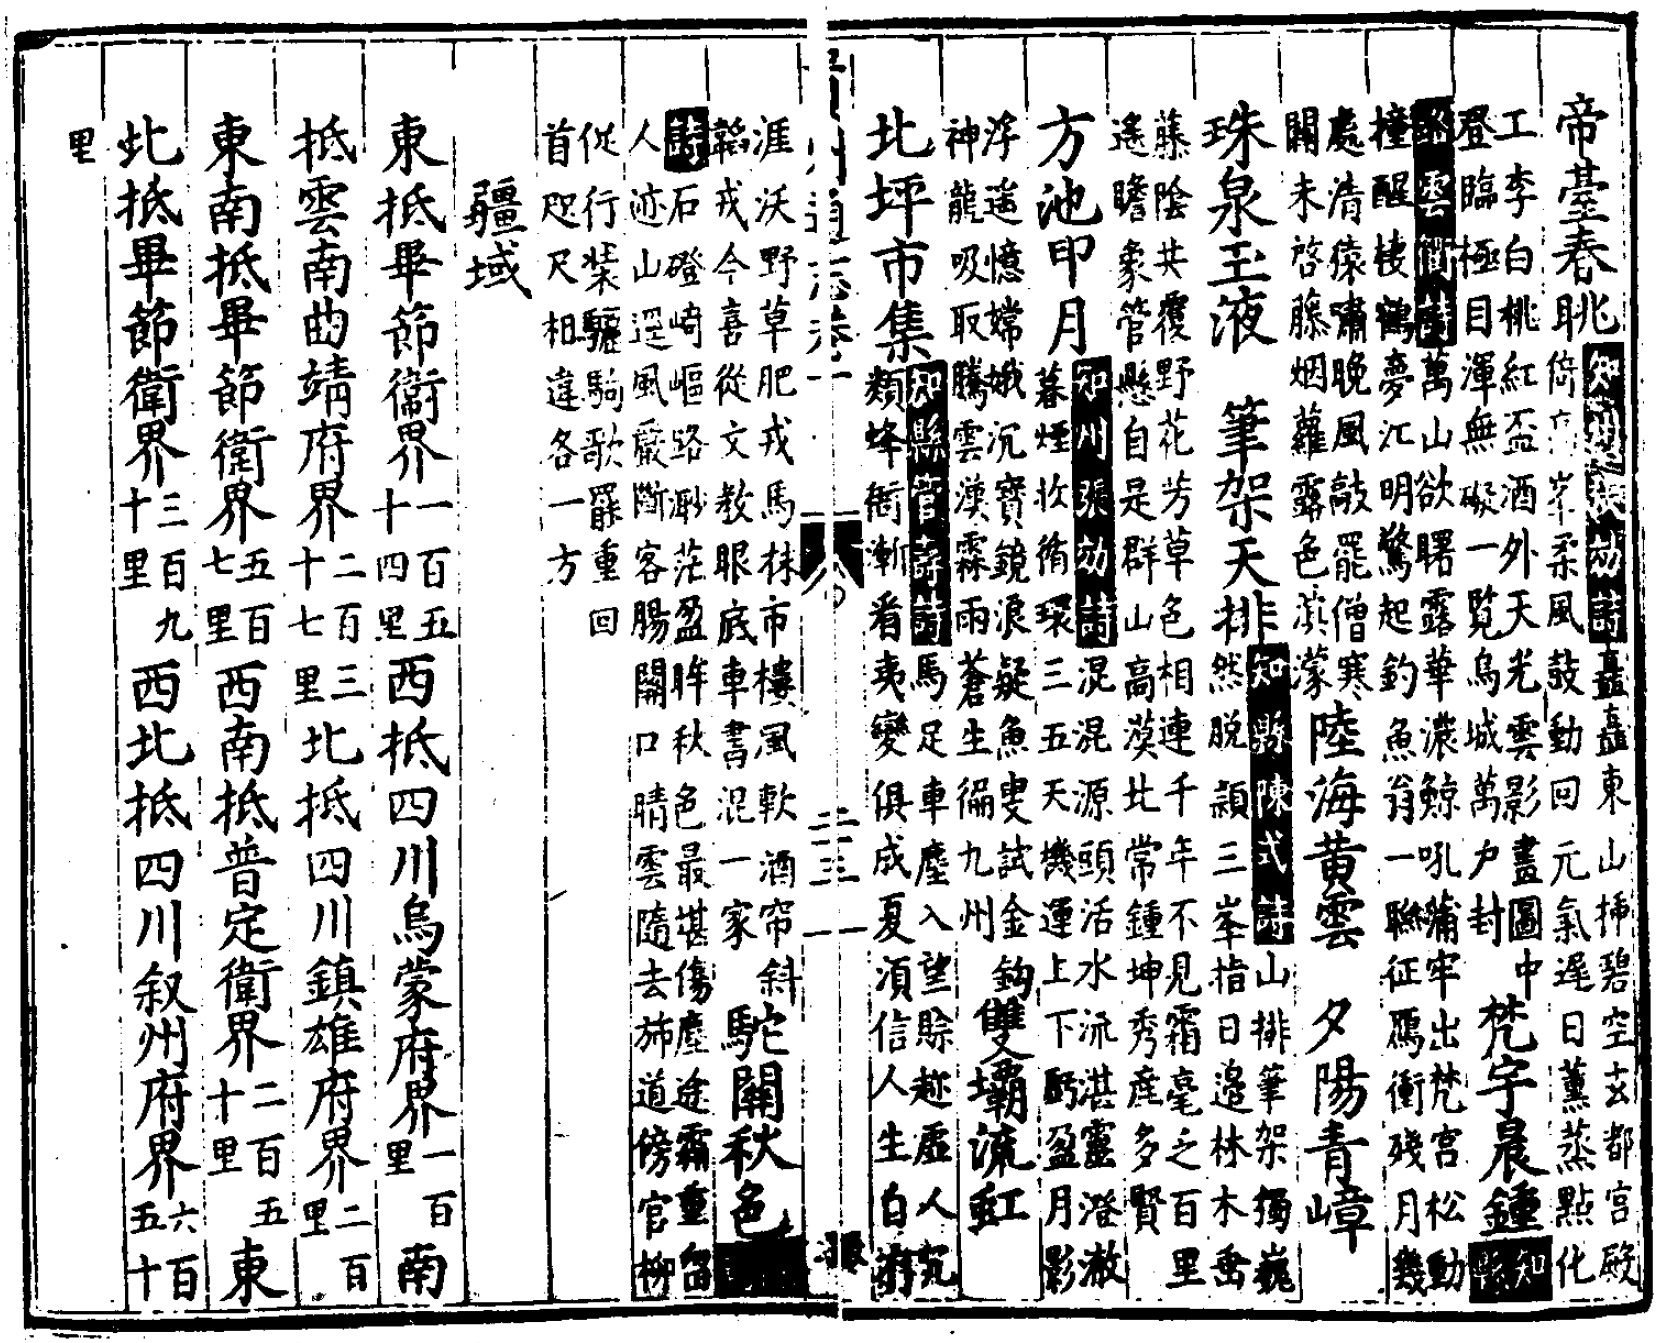 帝臺春眺
知州張幼詩矗矗東山揷碧空玄都宮殿
倚高峯柔風鼓動回元氣遲日薰蒸點化
工李白桃紅盃酒外天光雲影畫圖中
登臨極目渾無礙一覽烏城萬戶封
梵宇晨鍾
知縣
孫雲衢詩萬山欲曙露華濃鯨吼蒲牢出梵宮松動
撞醒棲鶴夢江明驚起釣魚翁一聯征鴈衝殘月幾
處清猿嘯晚風敲罷僧寒
關未啓藤烟蘿露色濛濛
陸海黃雲　夕陽青嶂
珠泉玉液　筆架天排
知縣陳式詩山排筆架獨巍
然脫頴三峯指日邉林木垂
藤陰共覆野花芳草色相連千年不見霜毫之百里
遙瞻象管懸自是群山高漠北常鍾坤秀産多賢
方池印月
知州張幼詩混混源頭活水流湛靈澄澈
暮煙收循環三五天機運上下虧盈月影
浮遥憶嫦娥沉寶鏡浪疑魚叟試金鈎
神龍吸取騰雲漢霖雨蒼生徧九州
雙壩流虹
北坪市集
知縣曾詩馬足車塵入望賒趂虛人宂
類蜂衙漸看夷變俱成夏湏信人生自
涯沃野草肥戎馬秣市樓風軟酒帘斜
韜戎今喜從文教眼底車書混一家
駝關秋色
詩石磴崎嶇路渺茫盈眸秋色最堪傷塵途霜重留
人迹山逕風嚴斷客腸關口晴雲隨去斾道傍官柳
從行槳驪駒歌罷重回
首咫尺相違各一方
疆域
東抵畢節衞界一百五十四里西抵四川烏蒙府界一百里南
抵雲南曲靖府界二百三十七里北抵四川鎮雄府界二百里
東南抵畢節衛界五百七里西南抵普定衛界二百五十里東
北抵畢節衛界三百九十里西北抵四川叙州府界六百五十
里